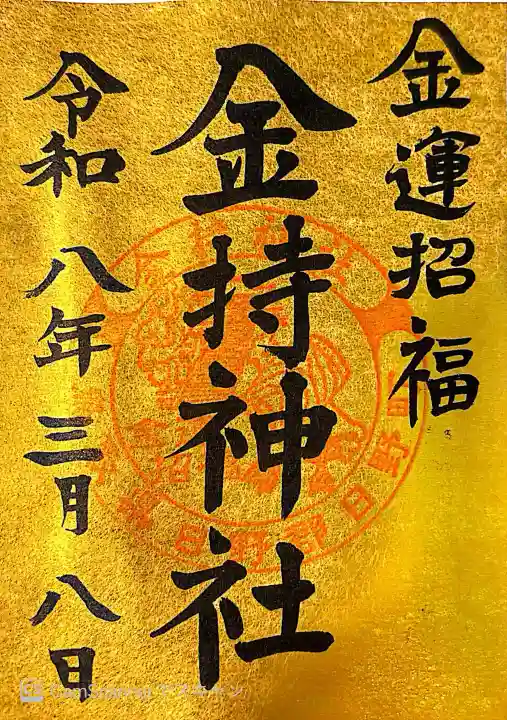 金運招福
金持神社
令和八年三月八日